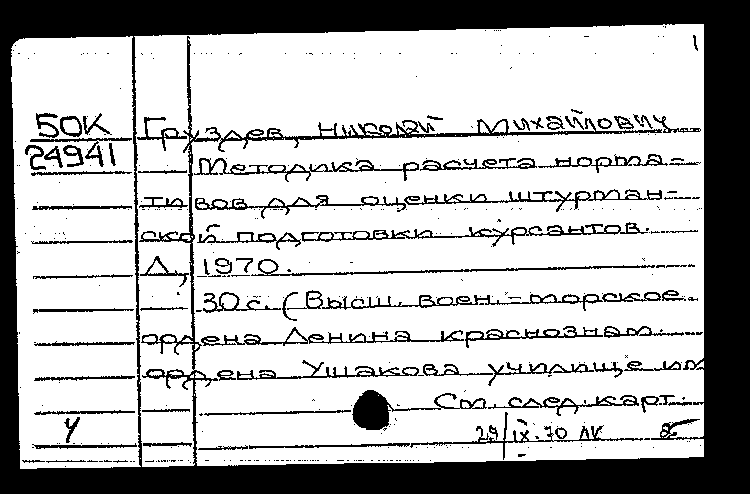 1
50К Груздев, Николай Михайлович
24941 Методика расчета норма-
тивов для оценки штурман-
ской подготовки курсантов.
Л., 1970.
30 с. (Высш. воен.-морское
ордена Ленина краснознам.
ордена Ушакова училище им
См. след. карт.
У 29/IX.70